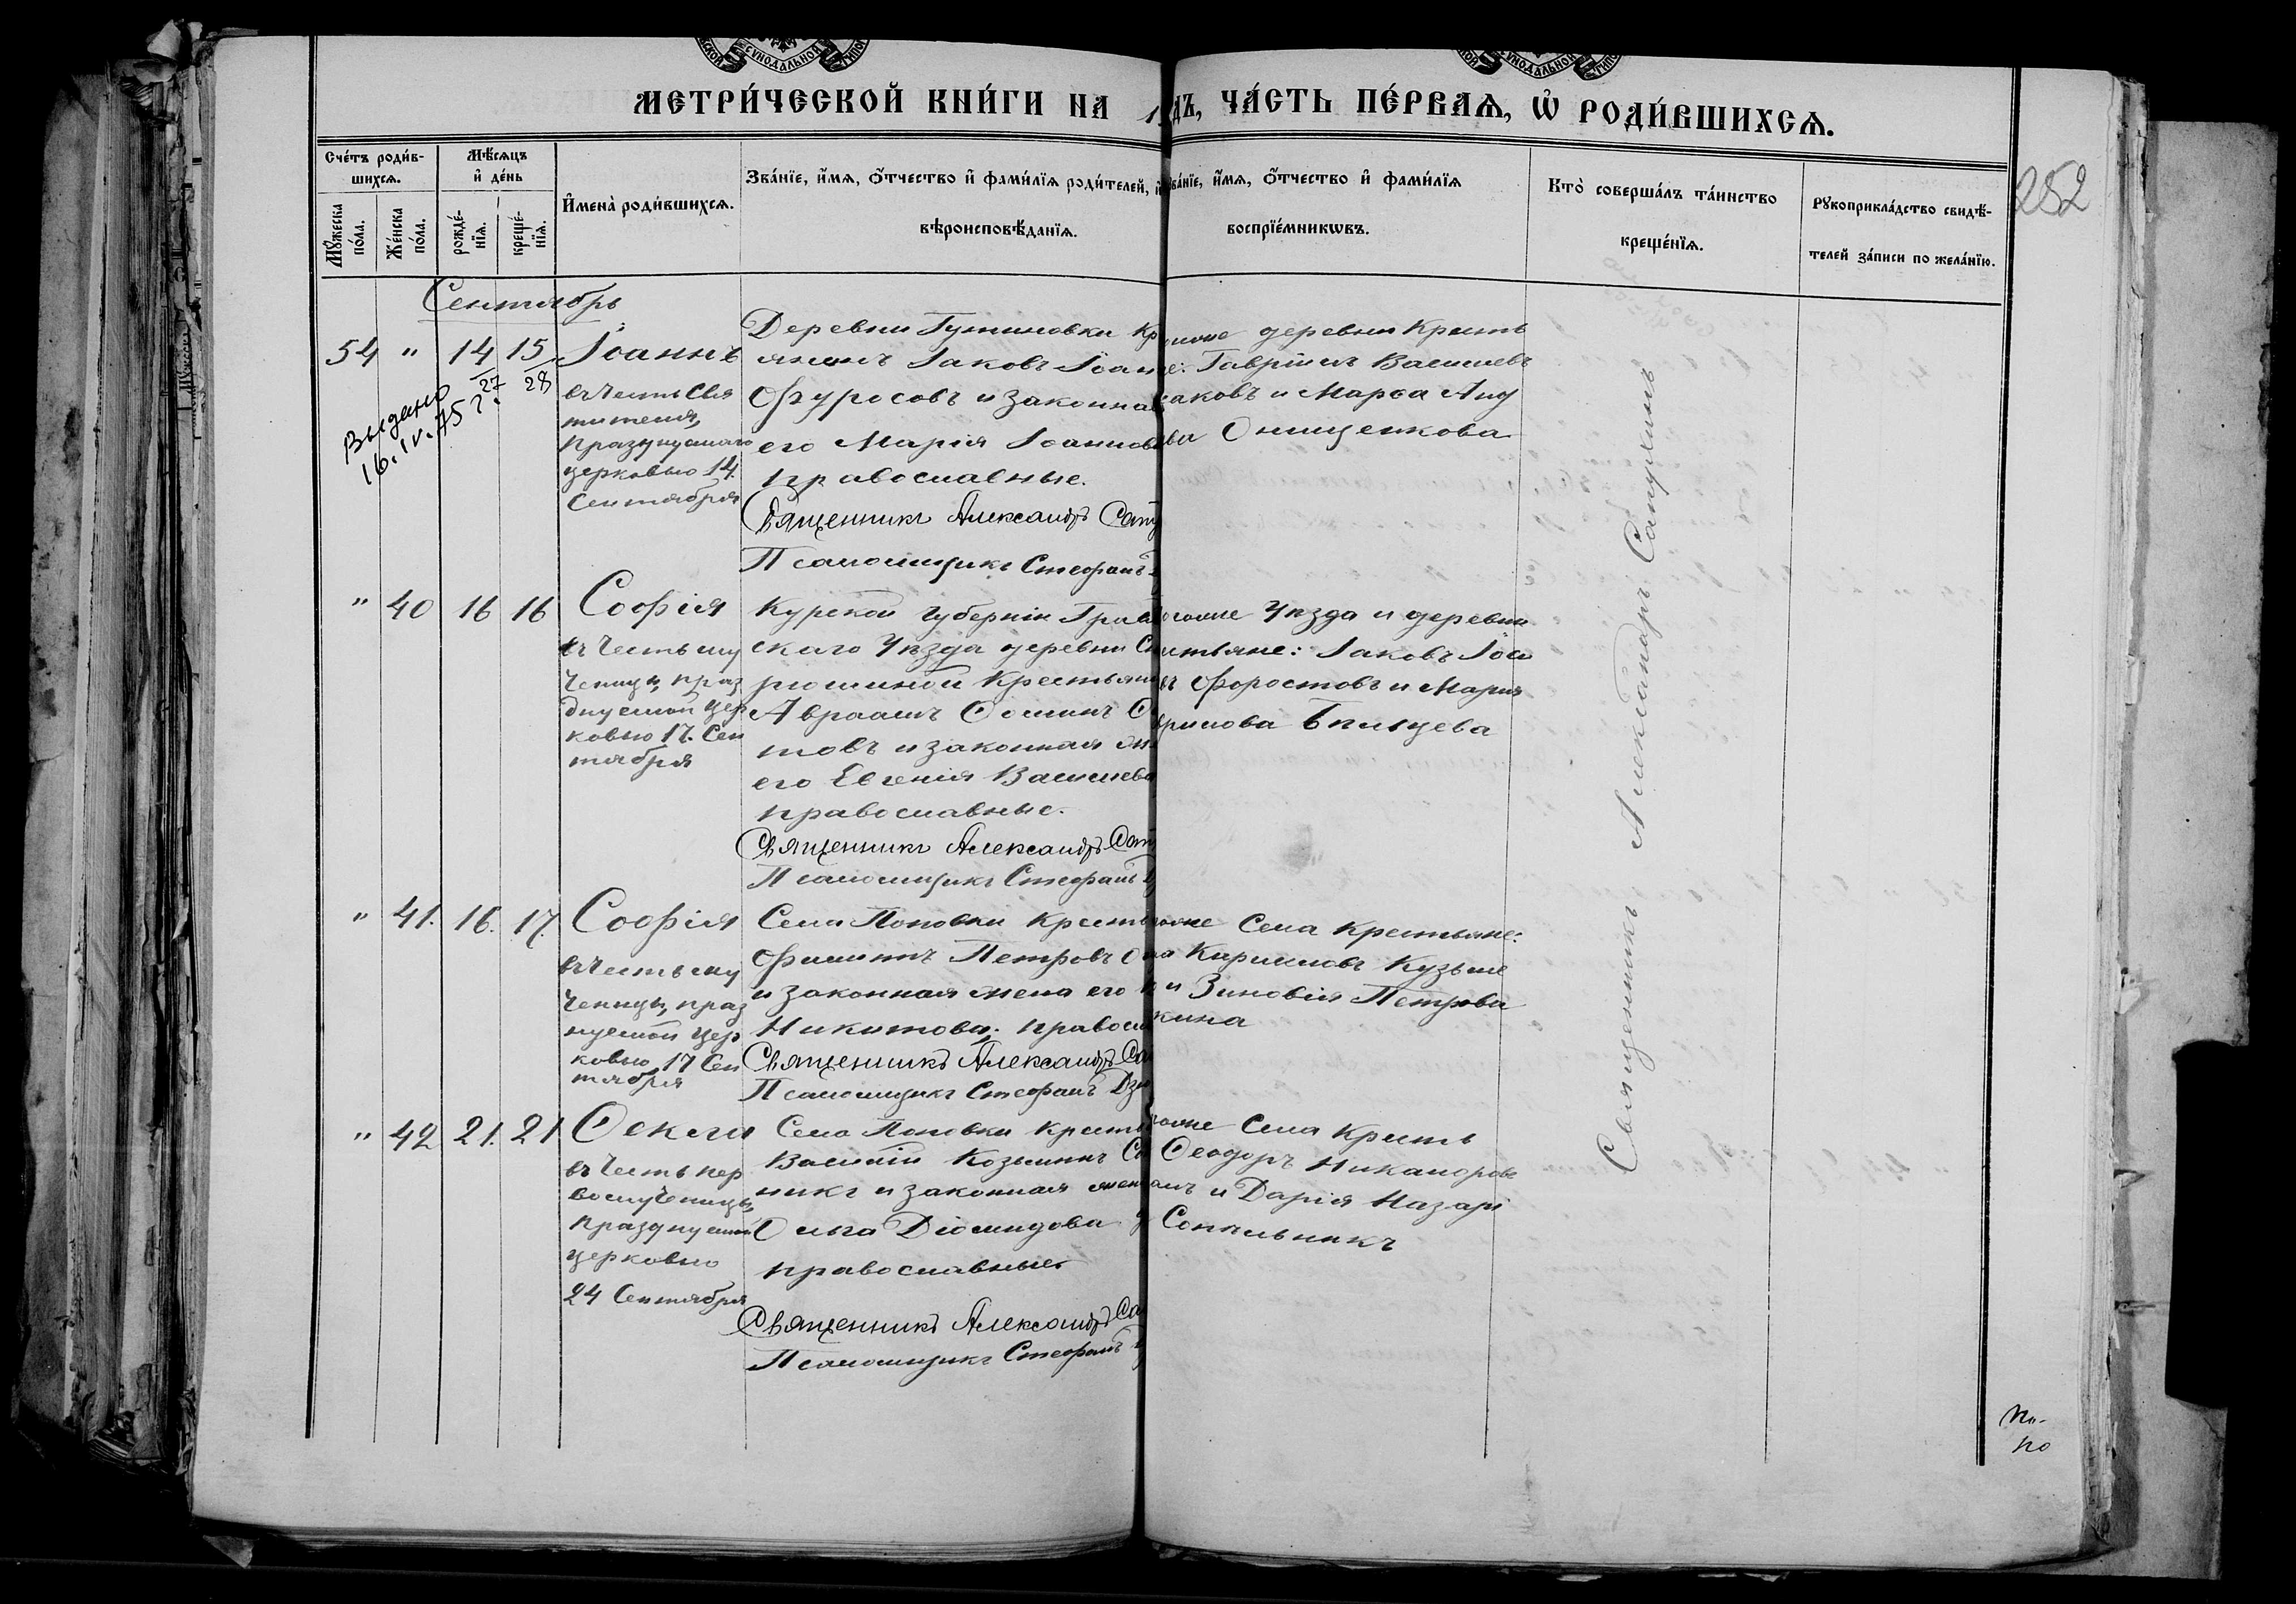 МЕТРИ́ЧЕСКОЙ КНИ́ГИ НА 1
ДЪ, ЧА́СТЬ ПЕ́РВАѦ, Ѽ РОДИ́ВШИХСѦ.
252
Сче́тъ роди́в-
шихсѧ.
Мꙋ́жеска
по́ла.
Же́нска
по́ла.
Мѣ́сѧцъ
и҆ де́нь
рожде́-
нїѧ.
креще́-
нїѧ.
И҆мена̀ роди́вшихсѧ.
Зва́нїе, и҆́мѧ, ѻ҆́тчество и҆ фами́лїѧ роди́телей, и҆
вѣроисповѣ́данїѧ.
ва́нїе, и҆́мѧ, ѻ҆́тчество и҆ фами́лїѧ
воспрїе́мникѡвъ.
Кто̀ соверша́лъ та́инство
креще́нїѧ.
Рꙋкоприкла́дство свидѣ́-
телей за́писи по жела́нїю.
Сентябрь
54 " 14 15 Іоаннъ
27 28
Выдано
16.IV.45 г.
въ честь Свя
тителя,
празднуемаго
церковью 14.
Сентября
Деревни Гутиновки Кр
янинъ Іаковъ Іоан
Фурсовъ и законная
его Марія Іоаннов
православные.
Священникъ Александръ Сап
Псаломщикъ Стефанъ
деревни Кресть
Гавріилъ Васильевъ
аковъ и Марѳа Анд
ва Онищенкова
" 40 16 16 Софія
въ честь му
ченицы, праз
днуемой цер
ковью 17. Сен
тября
Курской губерніи Грай
скаго Уѣзда деревни С
Крестьяни
Авраамъ Ѳоминъ
товъ и законная
его Евгенія Васильева
православные.
Священникъ Александръ Сап
Псаломщикъ Стефанъ
Уѣзда и деревни
стьяне: Іаковъ Іоа
въ Форостовъ и Марія
Бѣльцева
" 41. 16. 17. Софія
въ честь му
ченицы, праз
нуемой цер
ковью 17 Сен
тября
Села Поповки Кресть
Филиппъ Петровъ
и законная жена его
Никитова; правосл
Священникъ Александръ Са
Псаломщикъ Стефанъ Дзю
Села Крестьяне:
Кирилловъ Кузьме
и Зиновія Петрова
кина
" 42 21. 21 Ѳекла
въ честь пер
вомученицы,
празднуемой
церковью
24 Сентября
Села Поповки Кресть
Василій Козьминъ Со
никъ и законная жен
Ольга Діомидова
православные.
Священникъ Александръ Са
Псаломщикъ Стефанъ
Села Кресть
Ѳеодоръ Никаноровъ
и Дарія Назарі
Сопѣльникъ
Священникъ Александръ Сапухинъ